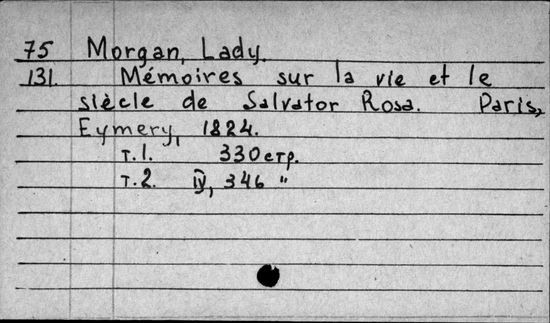 75 Morgan, Lady.
131. Mémoires sur la vie et le
siècle de Salvator Rosa. Paris,
Eymery, 1824.
т.1. 330 стр.
т.2. IV, 346 "